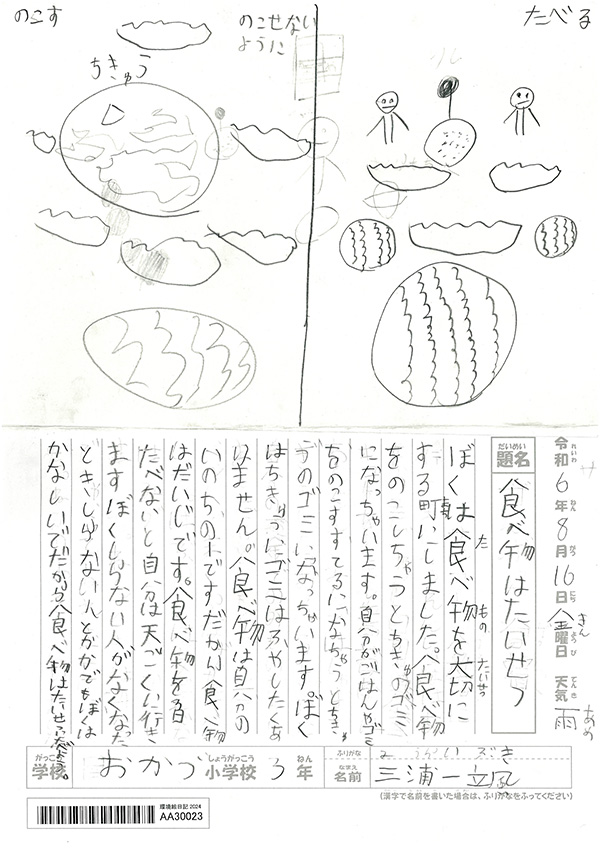 のこす
のこせない
ように
たべる
ちきゅう
令和6年8月16日金曜日 天気 雨
れいわ ねん がつ にち きん ようび てんき あめ
だいめい
題名
食べ物はたいせつ
ぼくは食べ物を大切に
た もの たいせつ
する
にしました。食べ物
をのこしちゃうとちきゅうのゴミ
になっちゃいます。自分がごはんやゴミ
をのこすすてるになちゃうとちきゅ
うのゴミになっちゃいます。ぼく
はちきゅうにゴミはふやしたくあ
りません。食べ物は自分の
いのちの1つですだから食べ物
はだいじです。食べ物を
たべないと自分は天ごくに行き
ますぼくしらない人がなくなった
ときしらない人とかがでもぼくは
かなしいでだから食べ物はたいせつ
がっこう
学校
しょうがっこう
小学校
3年
ねん
ふりがな
なまえ
名前
三浦一
(漢字で名前を書いた場合は、ふりがなをふってください)
環境絵日記 2024
AA30023